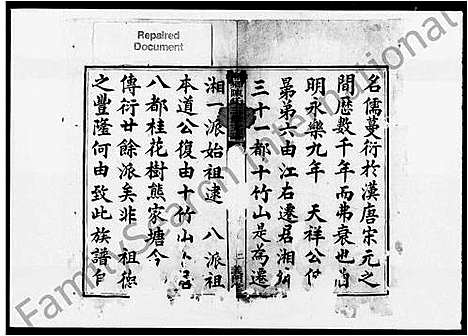 Repaired
Document
名儒蔓衍於漢唐宋元之
間歷數千年而弗衰也
明永樂九年 天祥公
昴弟六由江右遷居湘
三十一都十竹山是為遷
湘一派始祖逮 八派祖
本道公復由十竹山
八都桂花樹熊家塘今
傳衍廿餘派矣非 祖德
之豐隆何由致此族譜自
FamilySearch International